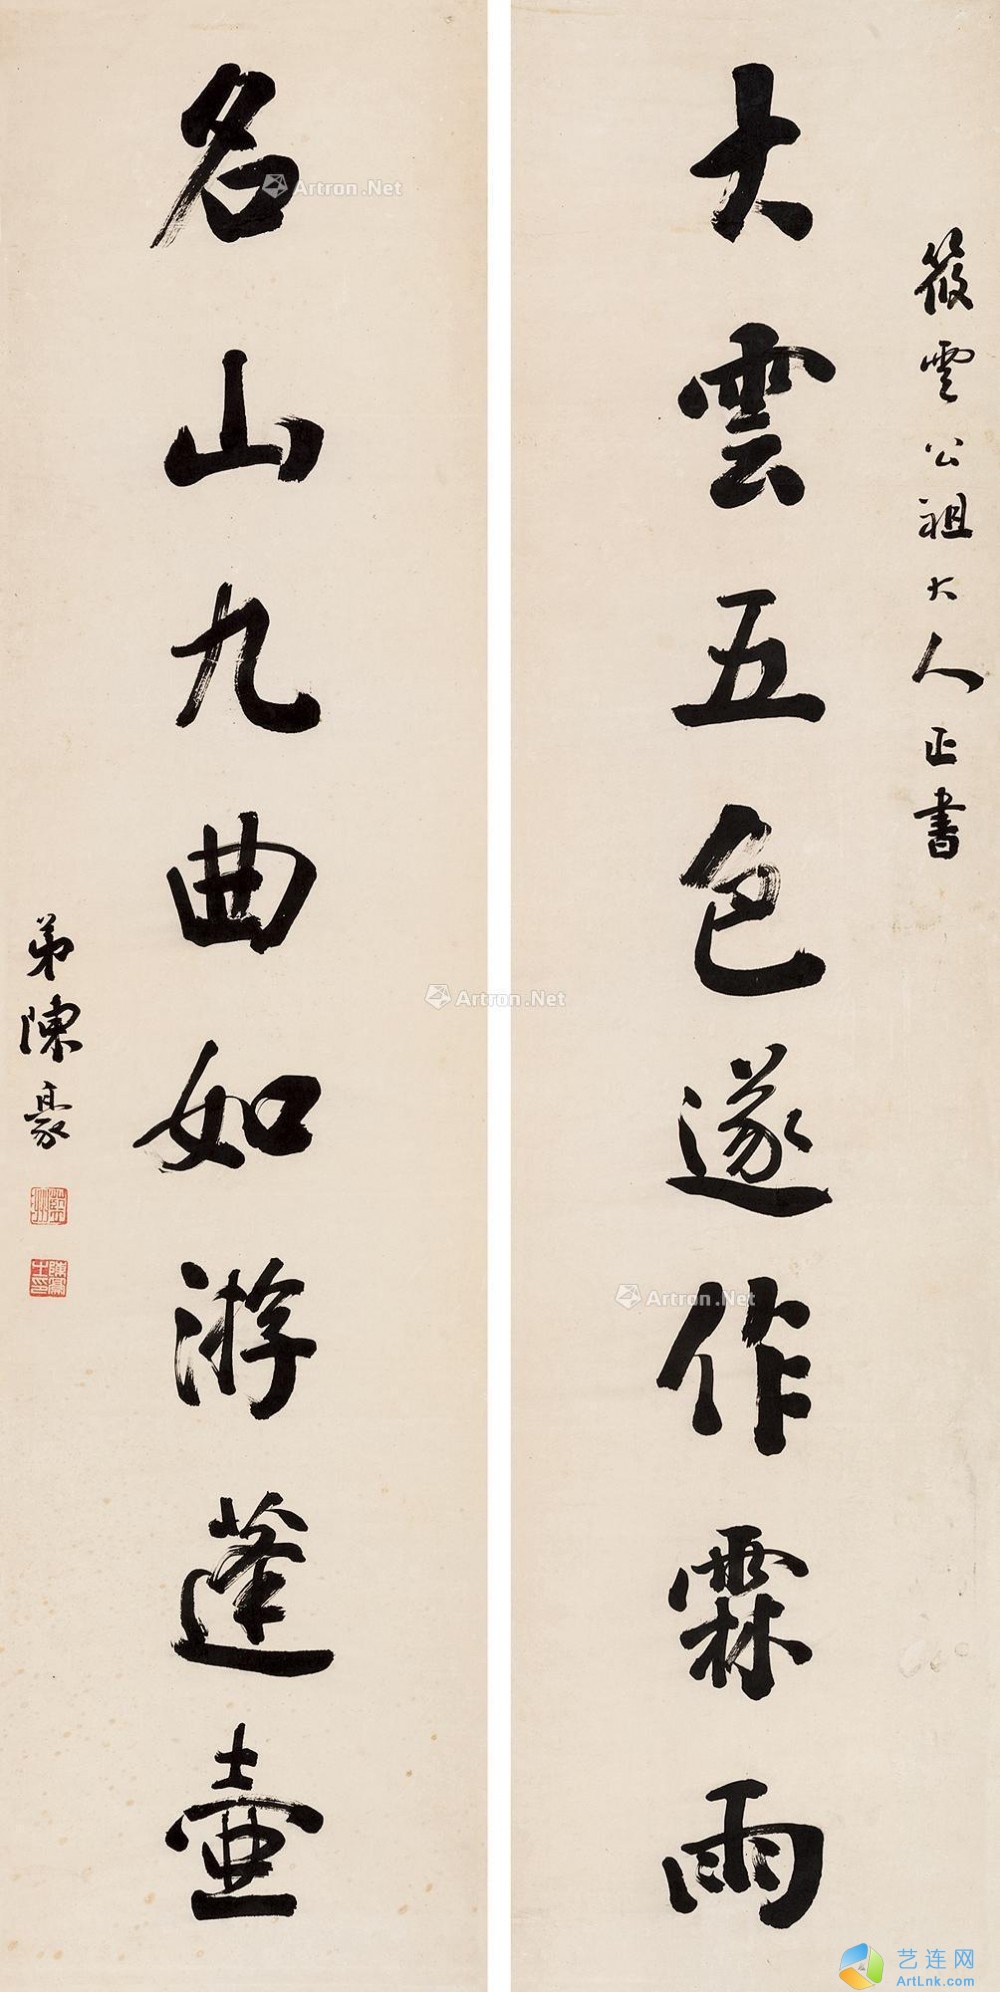 筱雲公祖大人正書
大雲五色遂作霖雨
名山九曲如游蓬壺
弟陳豪
藍洲
陳豪之印
Artron.Net
Artron.Net
Artron.Net
艺连网
ArtLnk.com